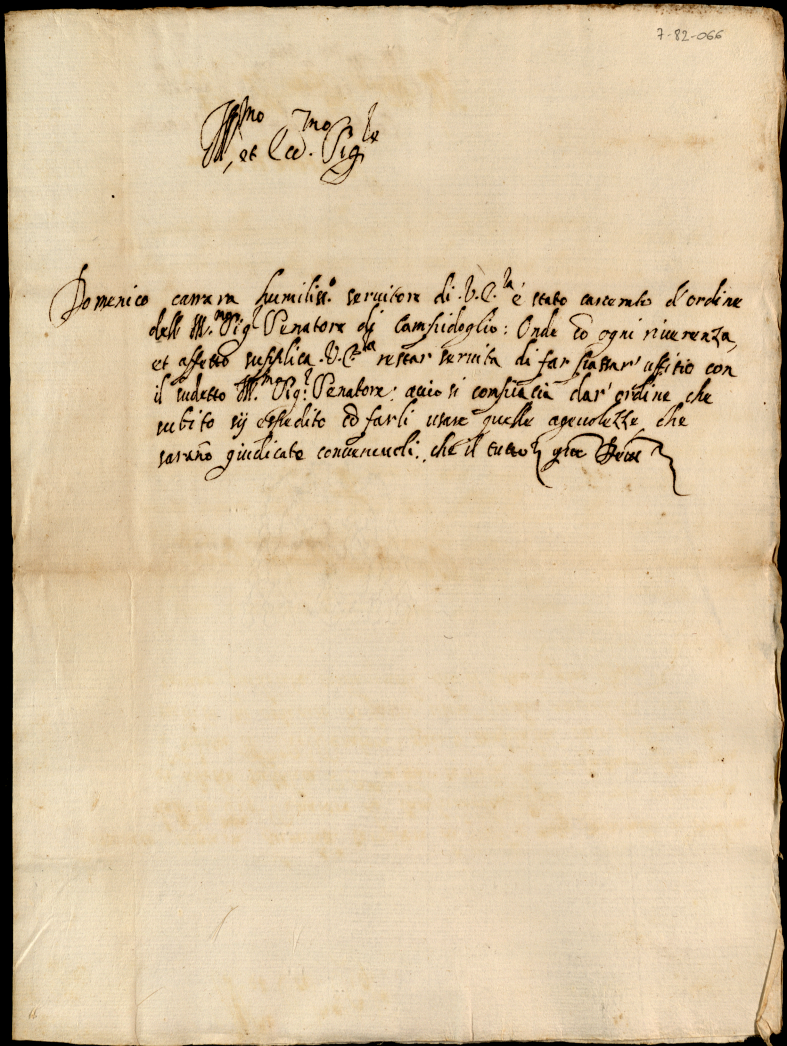 7-82-066
Ill.mo et Ecc.mo Sig.re
Domenico carrara humiliss.o seruitore di .V.E.za è stato carcerato d'ordine
dell Ill.mo Sig.r Senatore di Campidoglio: Onde cō ogni riuerenza,
et affetto supplica .V.E.za restar seruita di far passar' uffitio con
il sudetto Ill.mo Sig.r Senatore; acciò si compiacia dar' ordine che
subito sij espedito cō farli usare quelle ageuolezze, che
sarāno giudicate conueneuoli., che il tutto